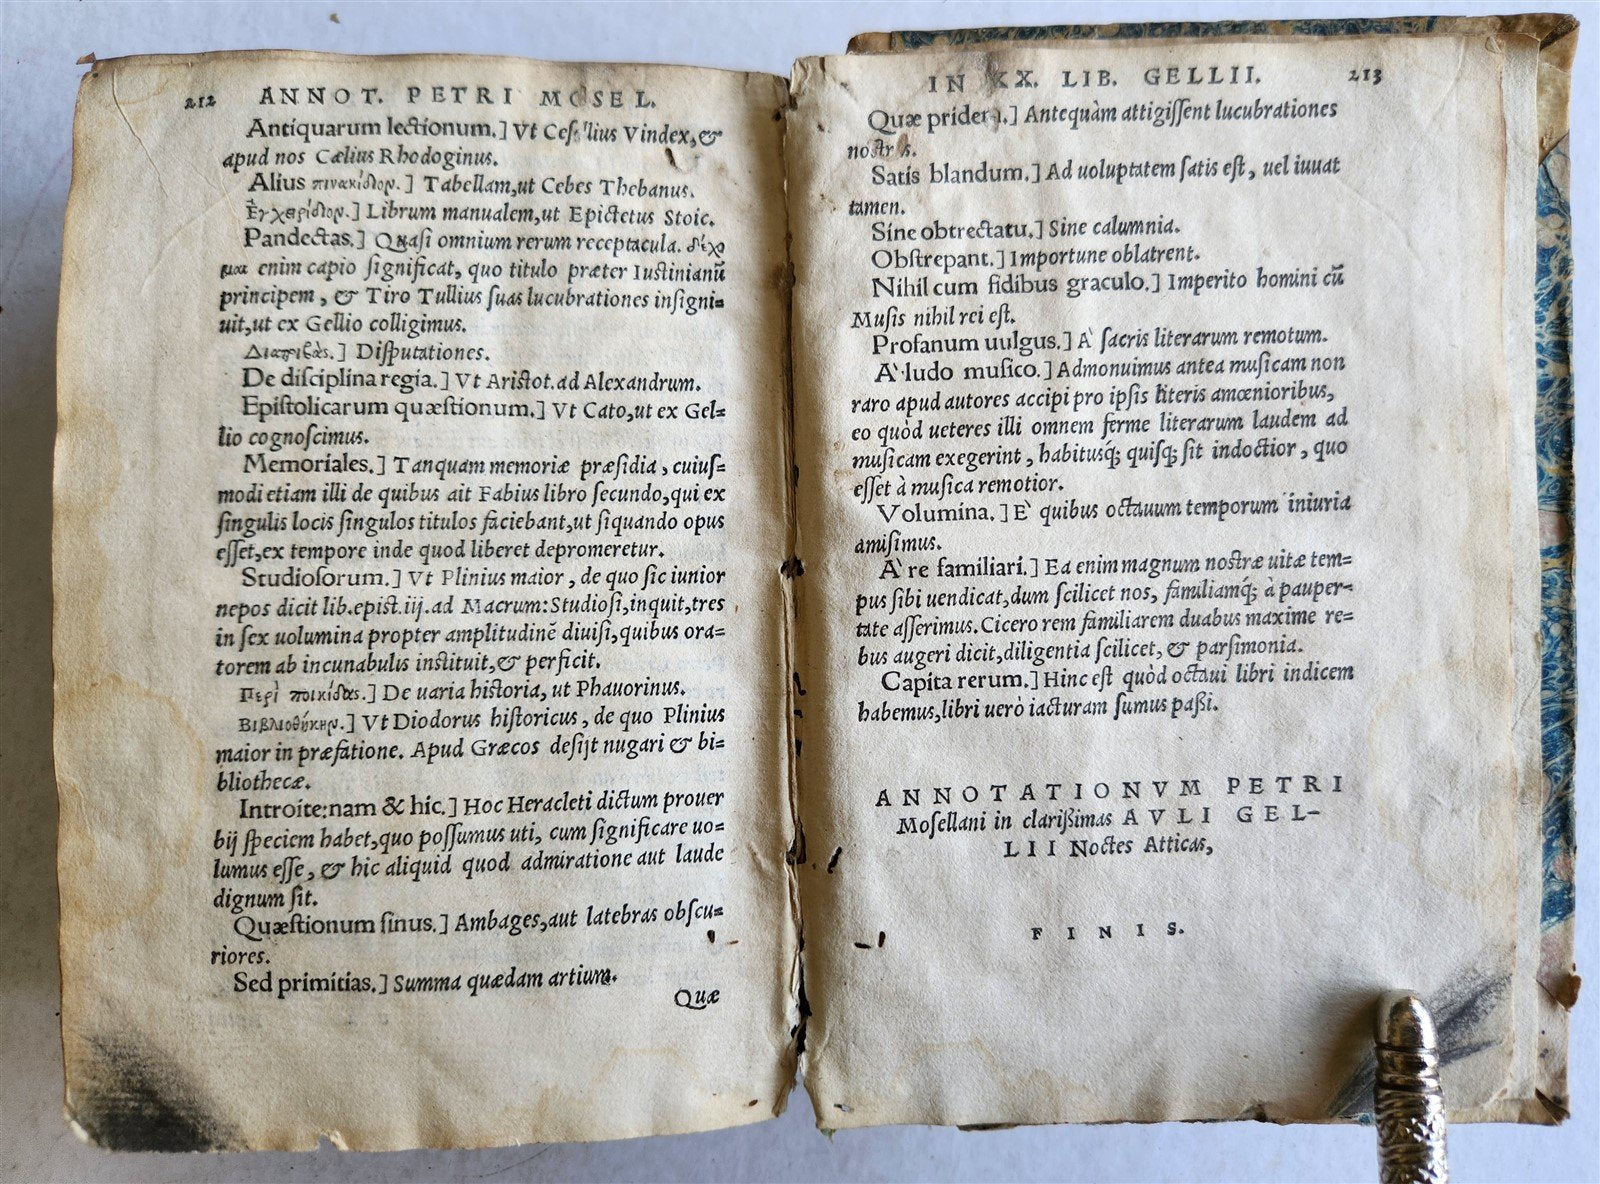 212 ANNOT. PETRI MOSEL.
Antiquarum lectionum.] Vt Cesſilius Vindex,&
apud nos Cælius Rhodoginus.
Alius πινακίδιον.] Tabellam,ut Cebes Thebanus.
Ἐγχειρίδιον.] Librum manualem,ut Epictetus Stoic.
Pandectas.] Quasi omnium rerum receptacula. δέχο
μαι enim capio ſignificat, quo titulo præter Iustinianũ
principem, & Tiro Tullius ſuas lucubrationes inſigni=
uit,ut ex Gellio colligimus.
Διατριβὰς.] Diſputationes.
De diſciplina regia.] Vt Ariſtot.ad Alexandrum.
Epiſtolicarum quæſtionum.] Vt Cato,ut ex Gel=
lio cognoſcimus.
Memoriales.] Tanquam memoriæ præſidia, cuiuſ=
modi etiam illi de quibus ait Fabius libro ſecundo,qui ex
ſingulis locis ſingulos titulos faciebant,ut ſiquando opus
eſſet,ex tempore inde quod liberet depromeretur.
Studioſorum.] Vt Plinius maior, de quo ſic iunior
nepos dicit lib.epiſt.iij.ad Macrum:Studioſi,inquit,tres
in ſex uolumina propter amplitudinẽ diuiſi,quibus ora=
torem ab incunabulis inſtituit,& perficit.
Περὶ ποικίδας.] De uaria hiſtoria, ut Phauorinus.
Βιβλιοθήκην.] Vt Diodorus hiſtoricus, de quo Plinius
maior in præfatione. Apud Græcos deſijt nugari & bi=
bliothecæ.
Introite:nam & hic.] Hoc Heracleti dictum prouer
bij ſpeciem habet,quo poſſumus uti, cum ſignificare uo=
lumus eſſe, & hic aliquid quod admiratione aut laude
dignum ſit.
Quæſtionum ſinus.] Ambages,aut latebras obſcu=
riores.
Sed primitias.] Summa quædam artium.
Quæ
IN XX. LIB. GELLII. 213
Quæ Antequàm attigiſſent lucubrationes
Satis blandum.] Ad uoluptatem ſatis eſt, uel iuuat
tamen.
Sine obtrectatu.] Sine calumnia.
Obſtrepant.] Importune oblatrent.
Nihil cum fidibus graculo.] Imperito homini cũ
Muſis nihil rei eſt.
Profanum uulgus.] A` ſacris literarum remotum.
A` ludo muſico.] Admonuimus antea muſicam non
raro apud autores accipi pro ipſis literis amœnioribus,
eo quòd ueteres illi omnem ferme literarum laudem ad
muſicam exegerint, habitusq́; quiſq; ſit indoctior, quo
eſſet à muſica remotior.
Volumina.] E` quibus octauum temporum iniuria
amiſimus.
A` re familiari.] Ea enim magnum noſtræ uitæ tem=
pus ſibi uendicat,dum ſcilicet nos, familiamq́; à pauper=
tate aſſerimus.Cicero rem familiarem duabus maxime re=
bus augeri dicit,diligentia ſcilicet, & parſimonia.
Capita rerum.] Hinc eſt quòd octaui libri indicem
habemus,libri uerò iacturam ſumus paßi.
ANNOTATIONVM PETRI
Moſellani in clarißimas AVLI GEL–
LII Noctes Atticas,
FINIS.